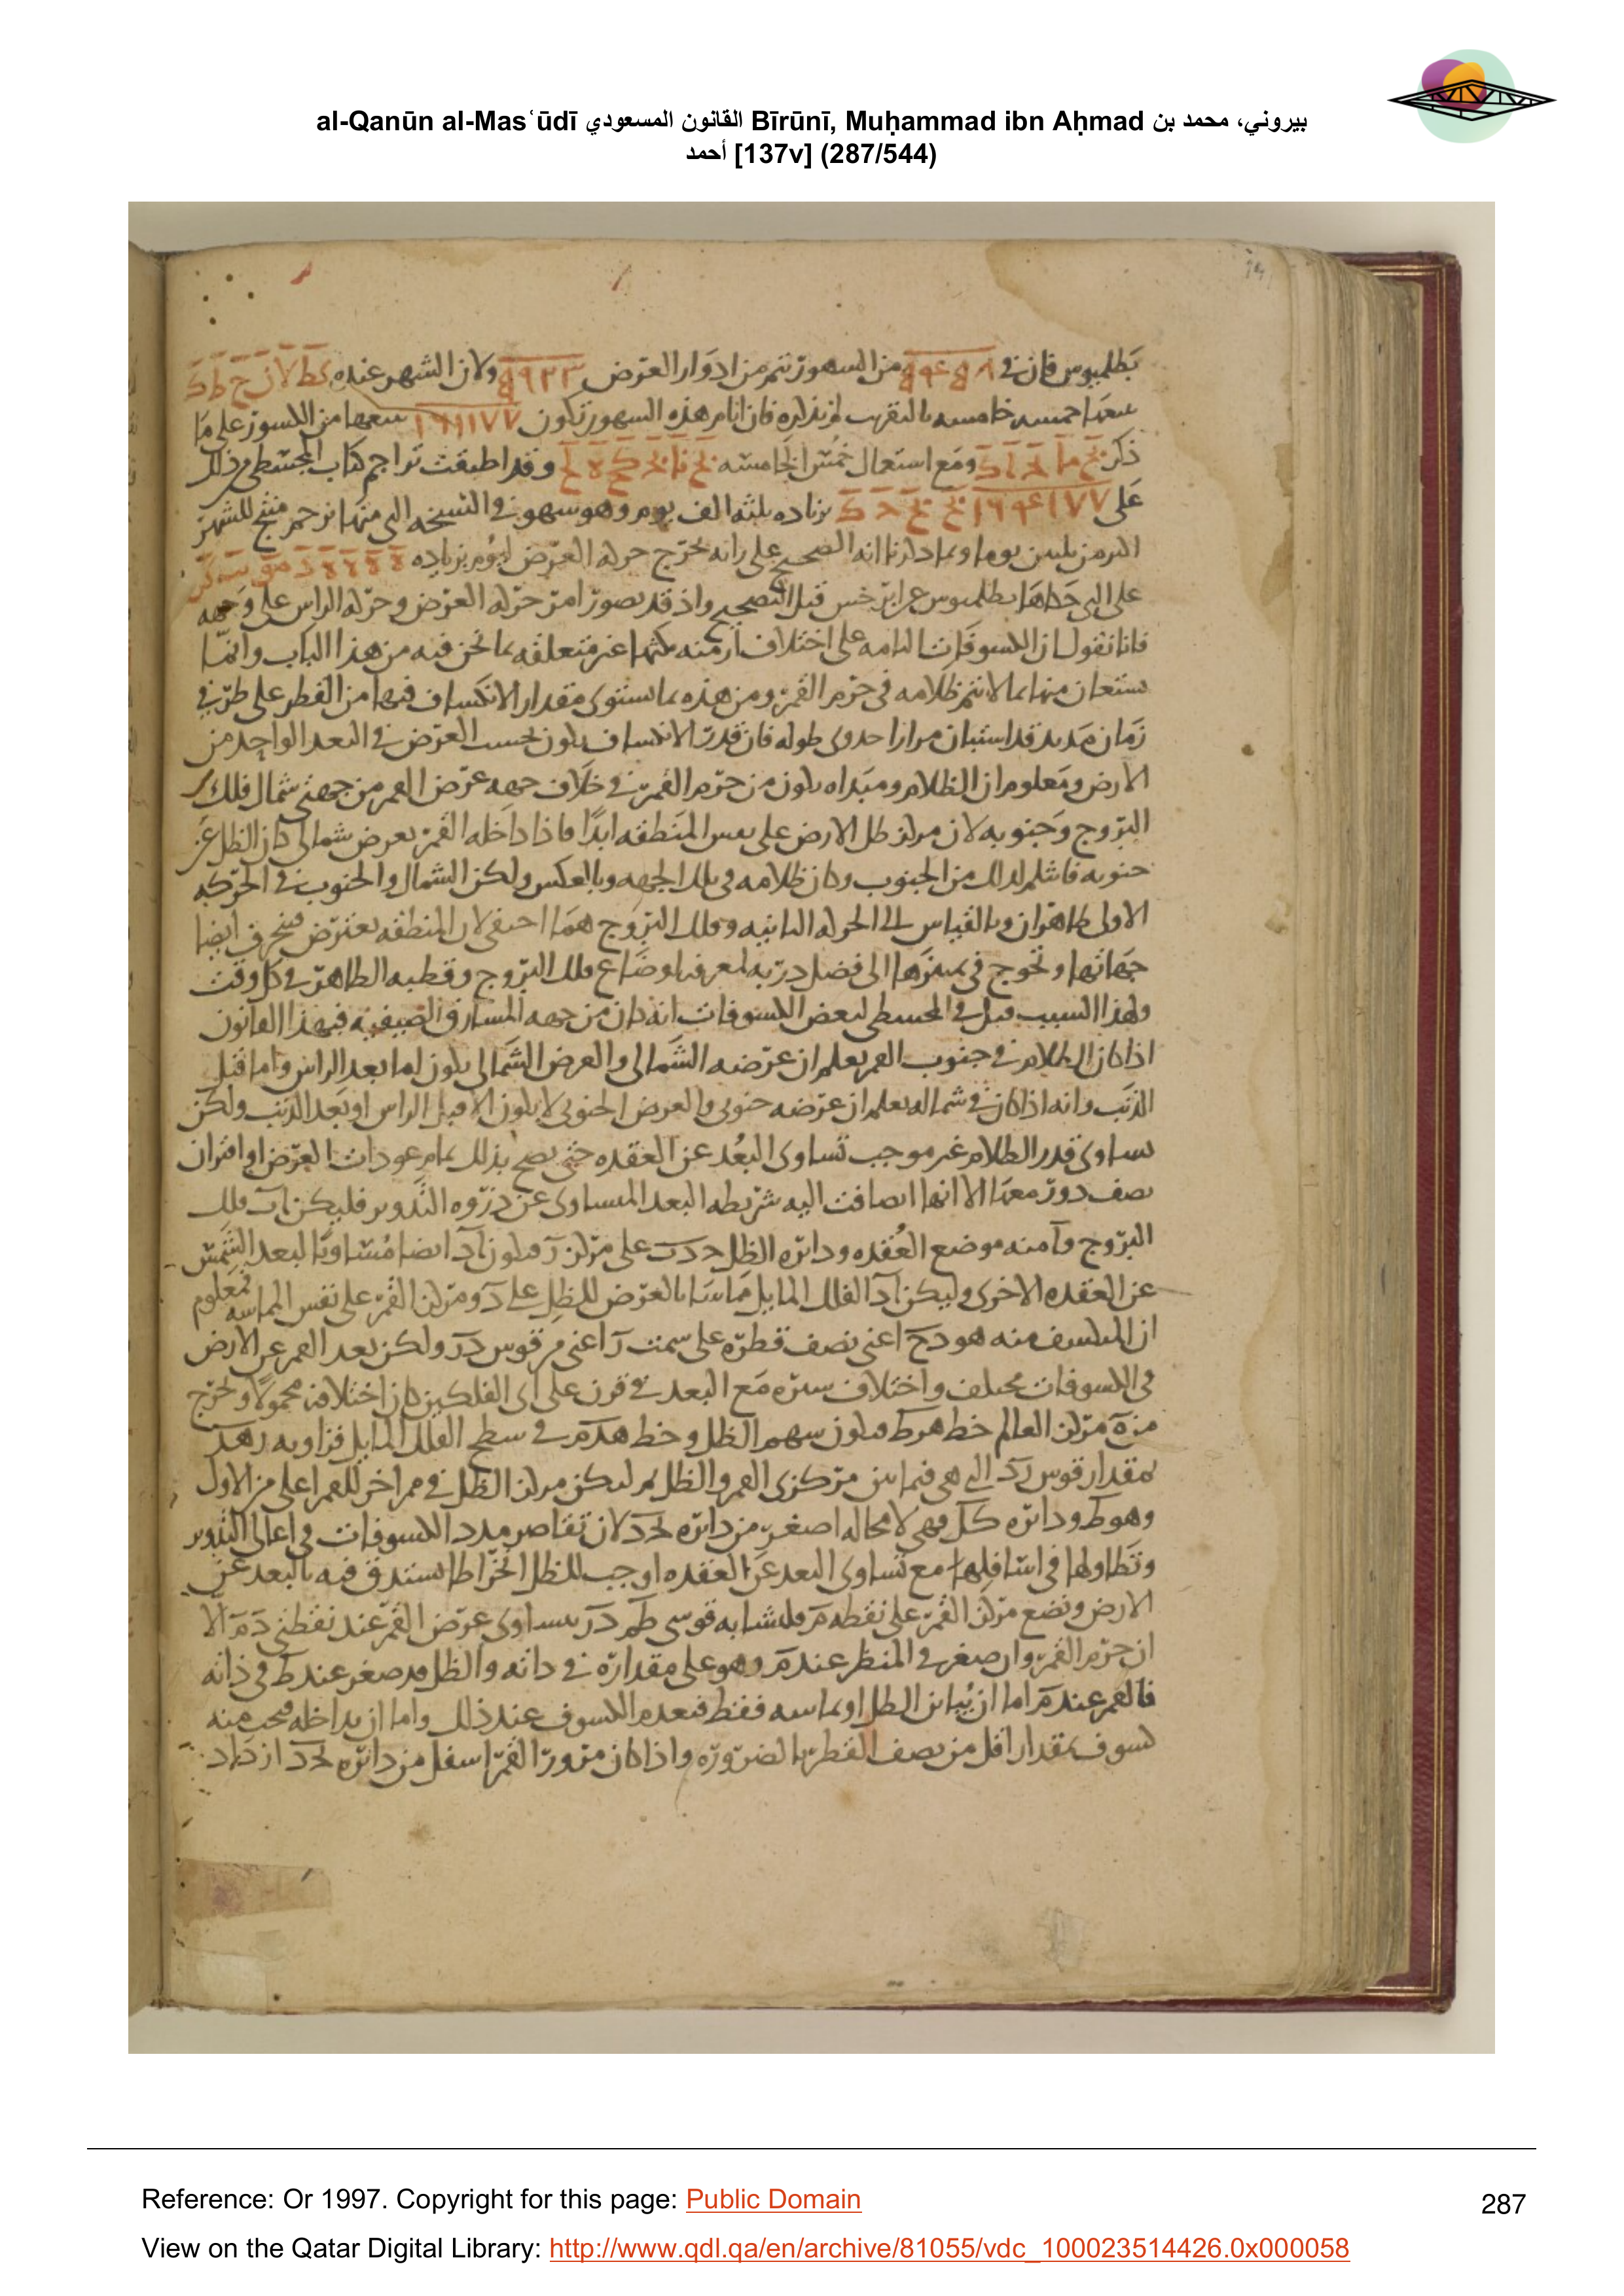 al-Qanūn al-Masʿūdī القانون المسعودي Bīrūnī, Muḥammad ibn Aḥmad بيروني، محمد بن
أحمد [137v] (287/544)
بطلميوس فان في من الشهور تتم من ادوار العرض ولان الشهر عنده
خامسه بالتقريب لم نذكره فان ايام هذه الشهور تكون من الكسور على ما
ذكر ومع استعمال خمس الخامسه وقد اطبقت تراجم كتاب المجسطى في ذلك
على بزياده ثلثه الف يوم وهو سهو في النسخه التي منها ترجم للشهر
انه الصحيح على رانه تخرج حركه العرض ليوم بزياده
على التي بطلميوس عن ابرخس قبل التصحيح واذ قد تصور امر حركه العرض وحركه الراس على وجهه
فانا نقول ان الكسوفات التامه على اختلاف ازمنه مكثها غير متعلقه بما نحن فيه من هذا الباب وانما
ستعان منها بما لا تتم ظلامه في جرم القمر ومن هذه بما استوى مقدار الانكساف فيها من القطر على طرفي
زمان مديد قد استبان مرارا جدوى طوله فان قدر الانكساف يكون بحسب العرض في البعد الواحد من
الارض ومعلوم ان الظلام ومبداه يكون من جرم القمر في خلاف جهه عرض القمر من جهتي شمال فلك
البروج وجنوبه لان مركز ظل الارض على نفس المنطقه ابدا فاذا داخله القمر بعرض شمالى كان الظل عن
جنوبه فانثلم لذلك من الجنوب وكان ظلامه في تلك الجهه وبالعكس ولكن الشمال والجنوب في الحركه
الاولى ظاهران وبالقياس الى الحركه الثانيه وفلك البروج هما اخفى لان المنطقه تعترض فتنحرف ايضا
جهاتها وتحوج في تمييزها الى فضل دربه لمعرفه اوضاع فلك البروج وقطبه الظاهر في كل وقت
ولهذا السبب قيل في المجسطى لبعض الكسوفات انه كان من جهه المشارق الصيفيه فبهذا القانون
اذا كان الظلام في جنوب القمر يعلم ان عرضه الشمالى والعرض الشمالى يكون اما بعد الراس واما قبل
الذنب وانه اذا كان في شماله يعلم ان عرضه جنوبى والعرض الجنوبى لا يكون الا قبل الراس او بعد الذنب ولكن
تساوى قدر الظلام غير موجب تساوى البعد عن العقده حتى يصح بذلك تمام عودات العرض او اقتران
نصف دور معها الا انها اضافت اليه شريطه البعد المساوى عن ذروه التدوير فليكن اب فلك
البروج وا منه موضع العقده ودائره الظل ح د ب على مركز ر فيكون ا ايضا مساويا لبعد الشمس
عن العقده الاخرى وليكن اد الفلك المايل مماسا بالعرض للظل على د ومركز القمر على نفس المماسه فمعلوم
ان المنكسف منه هو دح اعنى نصف قطره على سمت ر اعنى من قوس در ولكن بعد القمر عن الارض
في الكسوفات مختلف واختلاف ستره مع البعد في قرن على اى الفلكين كان اختلافه محمولا ونخرج
من ه مركز العالم خط هرط فيكون سهم الظل وخط هدم في سطح الفلك المايل فزاويه رهد
بمقدار قوس رد التي هى فيما بين مركزى القمر والظل ثم ليكن مركز الظل في ممر اخر للقمر اعلى من الاول
وهو ط ودائره كل فهى لا محاله اصغر من دائره لان تقاصر مدد الكسوفات في اعالى التدوير
وتطاولها في اسافلها مع تساوى البعد عن العقده اوجب للظل انخراطا استدق فيه بالبعد عن
الارض ونضع مركز القمر على نقطه م فلتشابه قوسى طم در يساوى عرض القمر عند نقطتى د م الا
ان جرم القمر وان صغر في المنظر عند م وهو على مقداره في ذاته والظل قد صغر عند ط في ذاته
فالقمر عند م اما ان يباين الظل او يماسه فقط فيعدم الكسوف عند ذلك واما ان يداخله فيجب منه
كسوف بمقدار اقل من نصف القطر بالضروره واذا كان مرور القمر اسفل من دائره ازداد
Reference: Or 1997. Copyright for this page: Public Domain
287
View on the Qatar Digital Library: http://www.qdl.qa/en/archive/81055/vdc_100023514426.0x000058